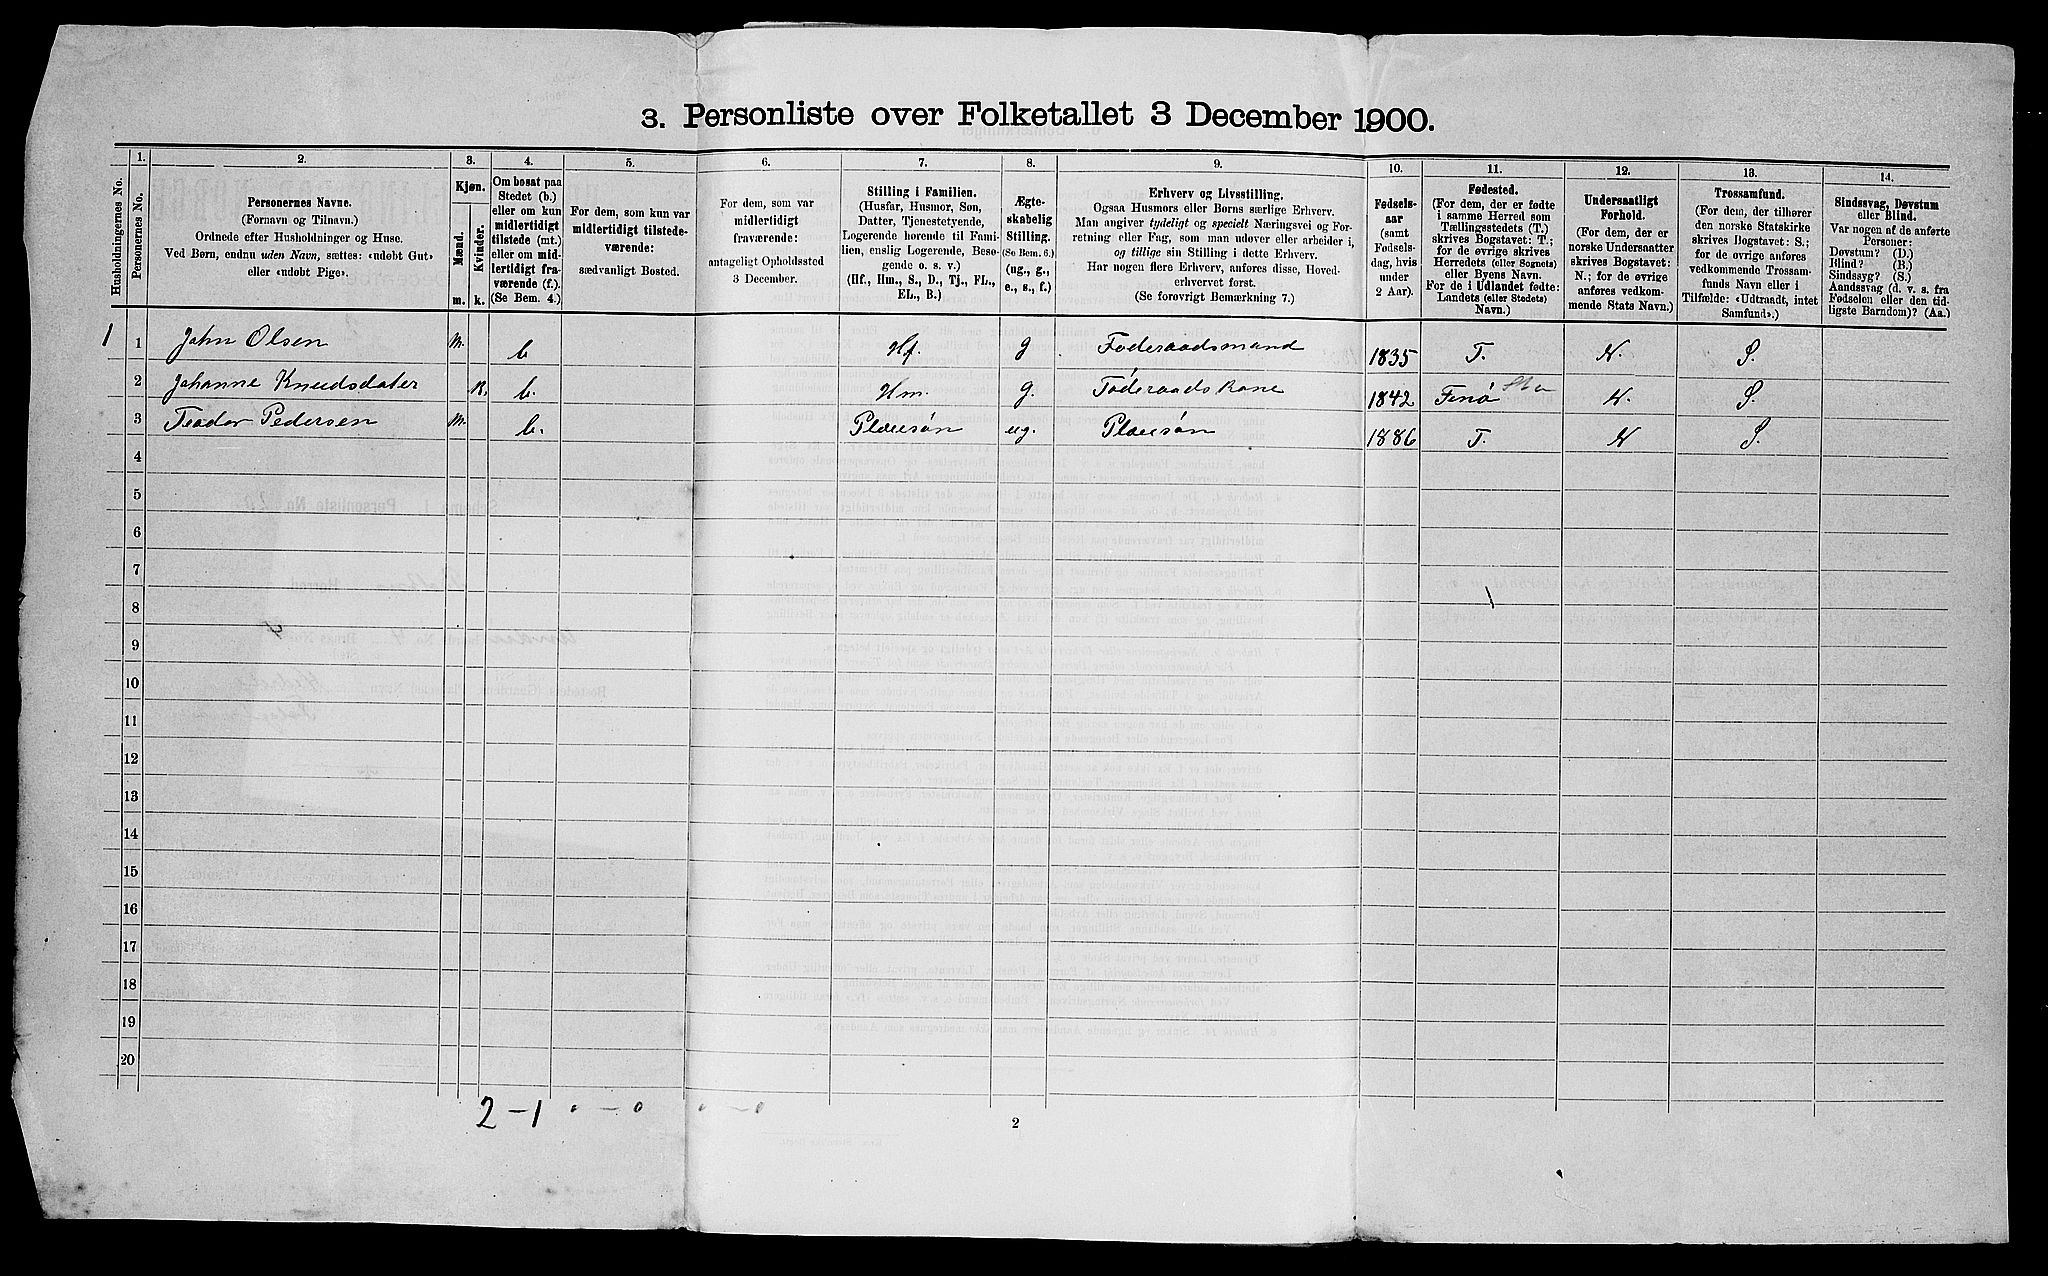 3. Personliste over Folketallet 3 December 1900.
Husholdningernes No.
1. Personernes No.
2.
Personernes Navne.
(Fornavn og Tilnavn.)
Ordnede efter Husholdninger og Huse.
Ved Børn, endnu uden Navn, sættes: «udøbt Gut»
eller «udøbt Pige».
3.
Kjøn.
Mænd.
Kvinder.
m. k.
4.
Om bosat paa
Stedet (b.)
eller om kun
midlertidigt
tilstede (mt.)
eller om mid-
lertidigt fra-
værende (f.).
(Se Bem. 4.)
5.
For dem, som kun var
midlertidigt tilstede-
værende:
sædvanligt Bosted.
6.
For dem, som var
midlertidigt
fraværende:
antageligt Opholdssted
3 December.
7.
Stilling i Familien.
(Husfar, Husmor, Søn,
Datter, Tjenestetyende,
Logerende hørende til Fami-
lien, enslig Logerende, Besø-
gende o. s. v.)
(Hf., Hm., S., D., Tj., FL.,
EL., B.)
8.
Ægte-
skabelig
Stilling.
(Se Bem. 6.)
(ug., g.,
e., s., f.)
9.
Erhverv og Livsstilling.
Ogsaa Husmors eller Børns særlige Erhverv.
Man angiver tydeligt og specielt Næringsvei og For-
retning eller Fag, som man udøver eller arbeider i,
og tillige sin Stilling i dette Erhverv.
Har nogen flere Erhverv, anføres disse, Hoved-
erhvervet først.
(Se forøvrigt Bemærkning 7.)
10.
Fødsels-
aar
(samt
Fødsels-
dag, hvis
under
2 Aar).
11.
Fødested.
(For dem, der er fødte
i samme Herred som
Tællingsstedets (T.)
skrives Bogstavet: T.;
for de øvrige skrives
Herredets (eller Sognets)
eller Byens Navn.
For de i Udlandet fødte:
Landets (eller Stedets)
Navn.)
12.
Undersaatligt
Forhold.
(For dem, der er
norske Undersaatter
skrives Bogstavet:
N.; for de øvrige
anføres vedkom-
mende Stats Navn.)
13.
Trossamfund.
(For dem, der tilhører
den norske Statskirke
skrives Bogstavet: S.;
for de øvrige anføres
vedkommende Trossam-
funds Navn eller i
Tilfælde: «Udtraadt, intet
Samfund».)
14.
Sindssvag, Døvstum
eller Blind.
Var nogen af de anførte
Personer:
Døvstum? (D.)
Blind? (B.)
Sindssyg? (S.)
Aandssvag (d. v. s. fra
Fødselen eller den tid-
ligste Barndom)? (Aa.)
1 1 John Olsen m. b Hf. g Føderaadsmand 1835 T. N. S.
2 Johanne Knudsdater K. b. Hm. g. Føderaadskone 1842 Finø N. S.
3 Teodor Pedersen m. b. Pleiesøn ug. Pleiesøn 1886 T. N S.
4
5
6
7
8
9
10
11
12
13
14
15
16
17
18
19
20
2 – 1 0 – 0 0 – 0
2